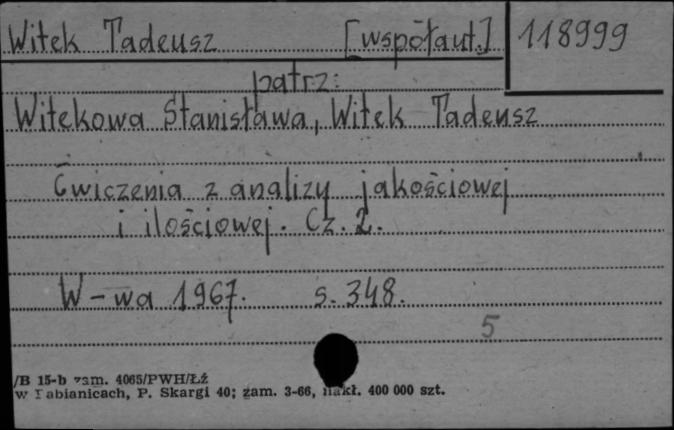 Witek Tadeusz [współaut.] 118999
patrz:
Witekowa Stanisława, Witek Tadeusz
Ćwiczenia z analizy jakościowej
i ilościowej. Cz. 2.
W-wa 1967. s. 348.
5
/B 15-b zam. 4065/PWH/Łź
w Pabianicach, P. Skargi 40; zam. 3-66, nakł. 400 000 szt.